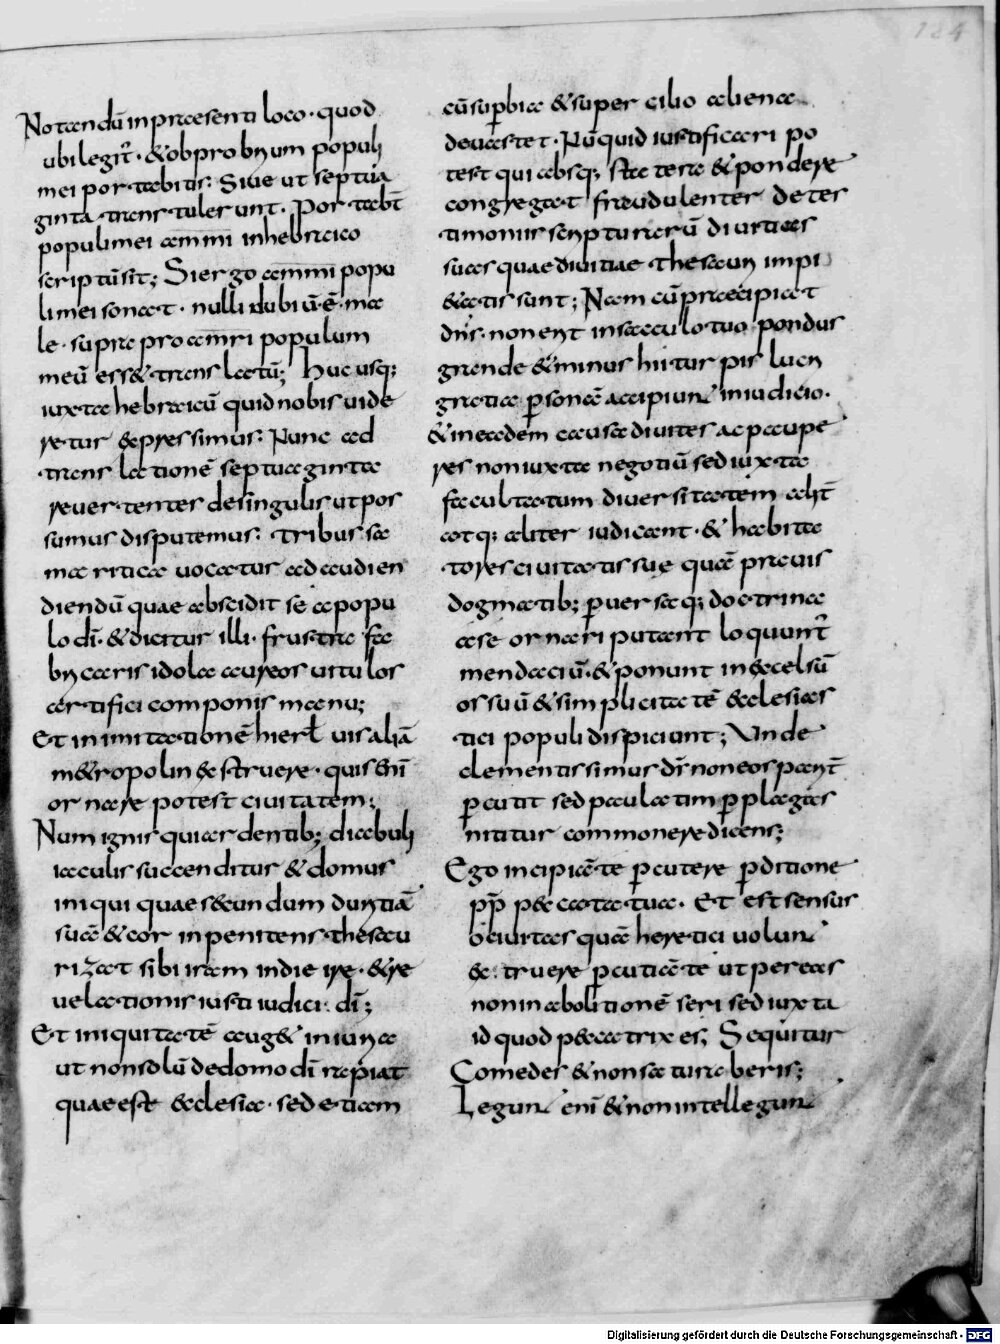 124
Notandū in praesenti loco · quod
ubi legit̄ · & obprobrium populi
mei portabitis: Siue ut septua
ginta transtulerunt · Portabt̄
populi mei ammi in hebraico
scriptū sit; Si ergo ammi popu
li mei sonat · nulli dubiū ē · ma
le · supra pro amri populum
meū ess& translatū; Huc usq;
iuxta hebraicū quid nobis uide
retur expressimus: Nunc ad
translationē septuaginta
reuertentes de singulis ut pos
sumus disputemus: tribus sa
maritica uocatur ad audien
diendū quae abscidit se a popu
lo dī · & dicitur illi · frustra fa
bricaris idola aureos uitulos
artifici componis manu;
Et in imitationē hierl̄ uis aliā
m&ropolin extruere · quis enī
ornare potest ciuitatem;
Num ignis qui ardentib; diabuli
iaculis succenditur & domus
iniqui quae secundum duritiā
suā & cor inpenitens thesau
rizat sibi iram in die irę · & re
uelationis iusti iudicii dī;
Et iniquitatē aug& iniuria
ut non solū de domo dī rapiat
quae est ecclesia · sed etiam
cū superbia & supercilio aliena
deuastet · Nūquid iustificari po
test qui absq; statera & pondere
congregat fraudulenter de tes
timoniis scripturarū diuitias
suas quae diuitiae thesauri impi
etatis sunt; Nam cū praecipiat
dn̄s · non erit in sacculo tuo pondus
grande & minus hii turpis lucri
gratia p̱sonā accipiunt in iudicio ·
& in eadem causa diuites ac paupe
res non iuxta negotiū sed iuxta
facultatum diuersitatem alit̄
atq; aliter iudicant · & habita
tores ciuitatis suę quā prauis
dogmatib; p̱uersaq; doctrina
a se ornari putant loquunt̄
mendaciū · & ponunt in excelsū
os suū & simplicitatē ecclesias
tici populi dispiciunt; Unde
clementissimus dn̄s non eos parit̄
p̱cutit sed paulatim p̱ plagas
nititur commonere dicens;
Ego incipiā te p̱cutere p̱ditione
pp̄ peccata tua · Et est sensus
o ciuitas quā heretici uolunt
extruere p̱cutiā te ut pereas
non in abolitionē seri sed iuxta
id quod peccatrix es; Sequitur
Comedes & non saturaberis;
Legunt enī & non intellegunt
Digitalisierung gefördert durch die Deutsche Forschungsgemeinschaft - DFG